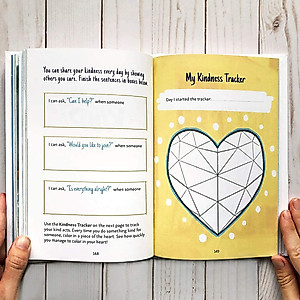 You can share your kindness every day by showing
others you care. Finish the sentences in boxes below.
I can ask, "Can I help?" when someone
I can ask, "Would you like to join?" when someone
I can ask, "Is everything alright?" when someone
Use the Kindness Tracker on the next page to track
your kind acts. Every time you do something kind for
someone, color in a piece of the heart. See how quickly
you manage to color in your heart!
168
My Kindness Tracker
Day I started the tracker: